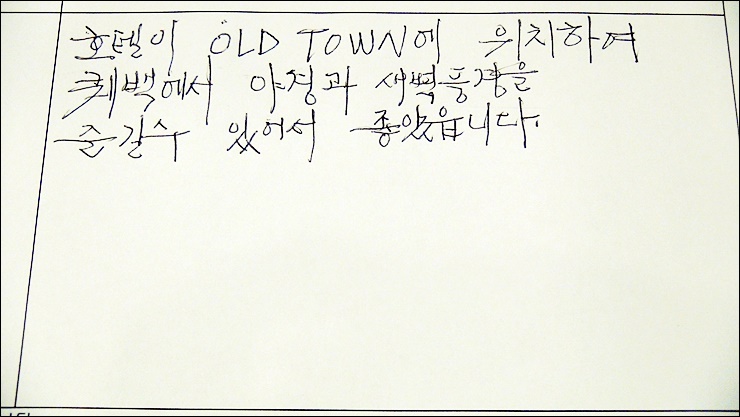 호텔이 OLD TOWN에 위치하여
퀘백에서 야경과 새벽풍경을
즐길수 있어서 좋았읍니다.